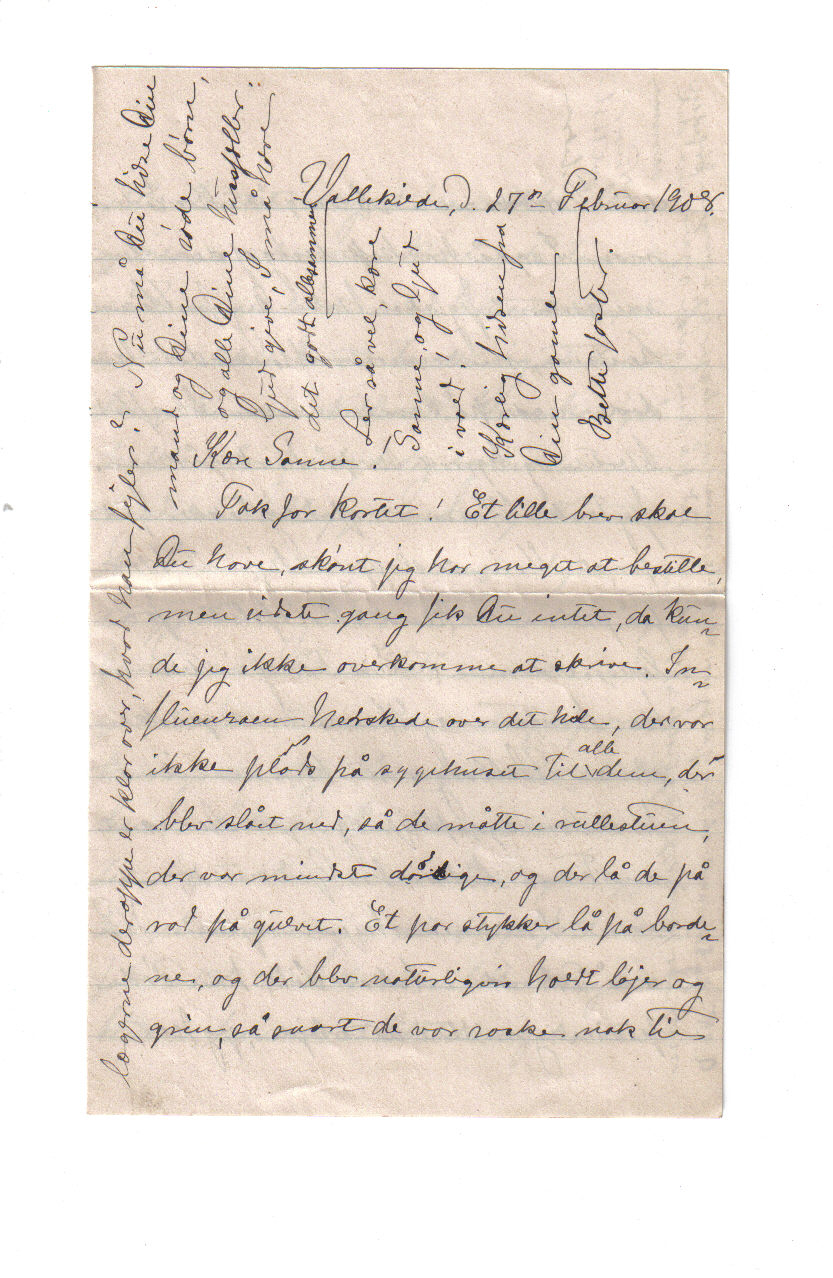 Vallekilde, d. 27n Februar 1908.
Kære Sanne!
Tak for kortet! Et lille brev skal
Du have, skønt jeg har meget at bestille,
men sidste gang fik Du intet, da kun-
de jeg ikke overkomme at skrive. In-
fluenzaen herskede over det hele, der var
ikke plads på sygehuset til alle dem, der
blev slået ned, så de måtte i rullestuen,
der var mindst dårlige, og der lå de på
rad på gulvet. Et par stykker lå på borde-
ne, og der blev naturligvis holdt løjer og
grin, så snart de var raske nok til
lægerne deroppe er klar over, hvad han fejler? Nu må Du hilse Din
mand og Dine søde børn,
og alle Dine husfæller.
Gud give, I må have
det godt allesammen
Lev så vel, kære
Sanne, og Gud
i vold!
Kærlig hilsen fra
Din gamle
Bette faster.